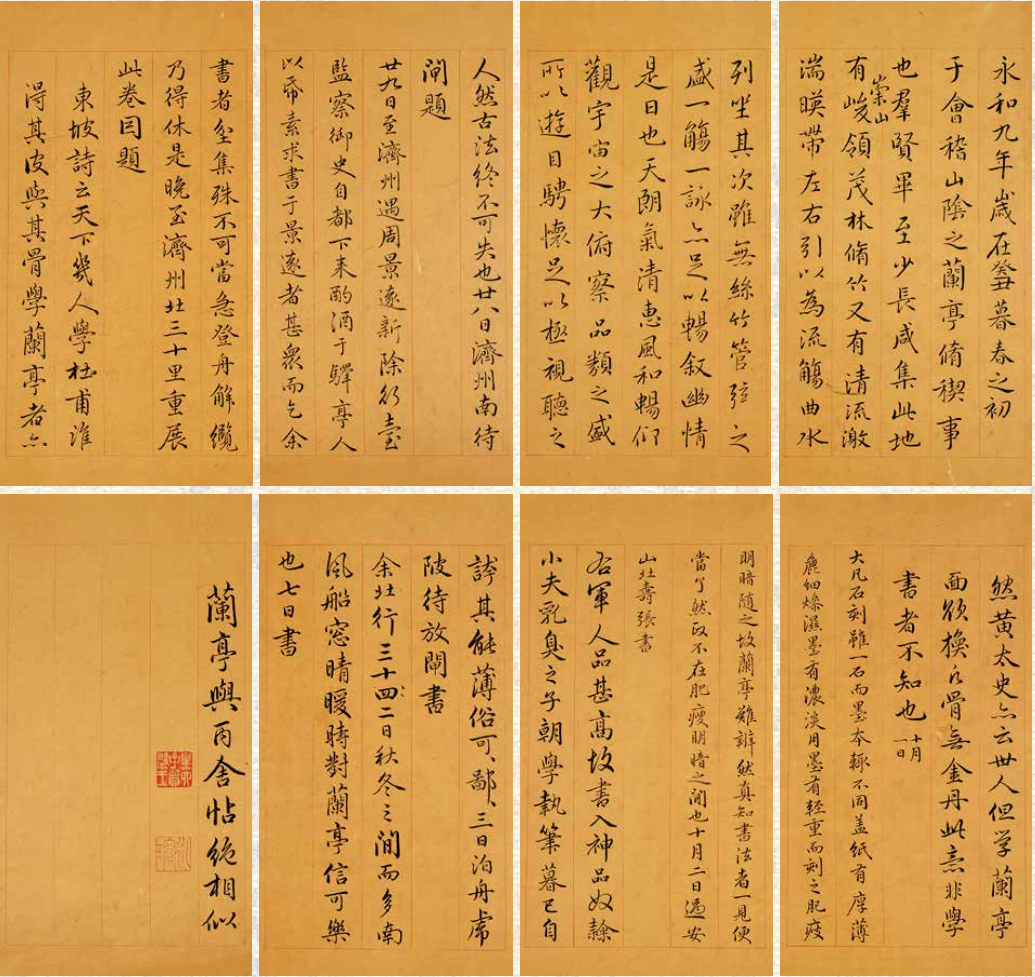 永和九年歲在癸丑暮春之初
于會稽山陰之蘭亭脩稧事
也羣賢畢至少長咸集此地
有崇山峻領茂林脩竹又有清流激
湍暎帶左右引以為流觴曲水
列坐其次雖無絲竹管弦之
盛一觴一詠亦足以暢敘幽情
是日也天朗氣清惠風和暢仰
觀宇宙之大俯察品類之盛
所以遊目騁懷足以極視聽之
人然古法終不可失也廿八日濟州南待
閘題
廿九日至濟州遇周景遠新除行臺
監察御史自都下来酌酒于驛亭人
以帋素求書于景遠者甚衆而乞余
書者坌集殊不可當急登舟解纜
乃得休是晚至濟州北三十里重展
此卷因題
東坡詩云天下幾人學杜甫誰
得其皮與其骨學蘭亭者亦
然黄太史亦云世人但学蘭亭
面欲換凡骨無金丹此意非學
書者不知也十月一日
大凡石刻雖一石而墨本輒不同盖紙有厚薄
麁細燥濕墨有濃淡用墨有輕重而刻之肥瘦
明暗随之故蘭亭難辨然真知書法者一見便
當了然政不在肥瘦明暗之間也十月二日過安
山北壽張書
右軍人品甚高故書入神品奴隸
小夫乳臭之子朝學執筆暮已自
誇其能薄俗可、鄙、三日泊舟虎
陂待放閘書
余北行三十四二日秋冬之間而多南
風船窓晴暖時對蘭亭信可樂
也七日書
蘭亭與丙舍帖絶相似